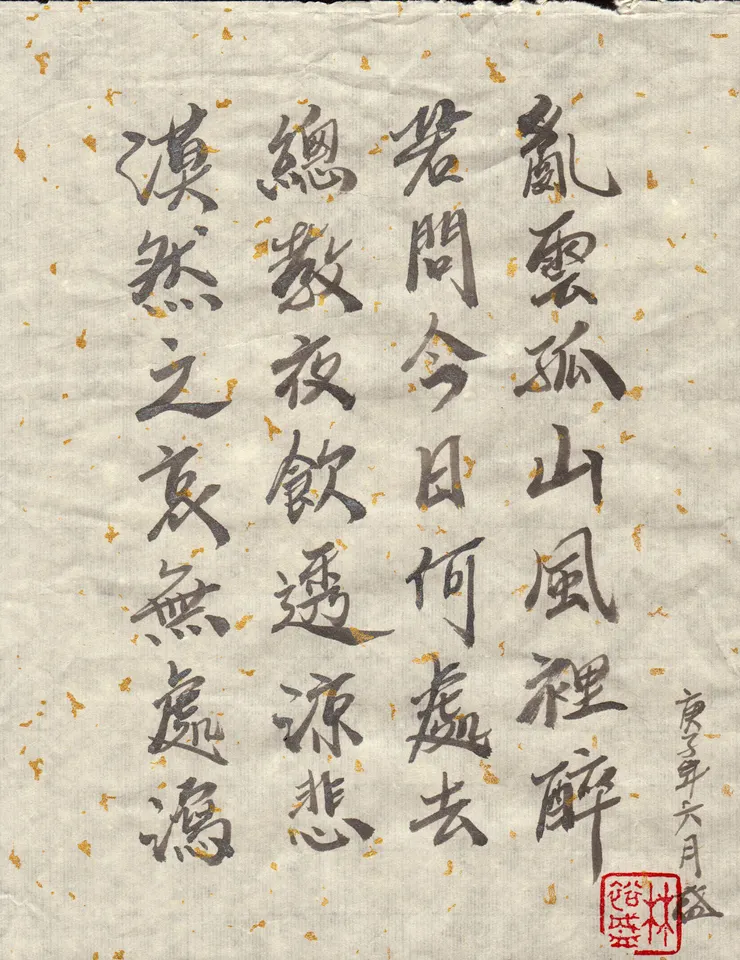 亂雲孤山風裡醉
若問今日何處去
總教夜飲透涼悲
漠然之哀無處瀉
庚子年六月盛
林裕盛